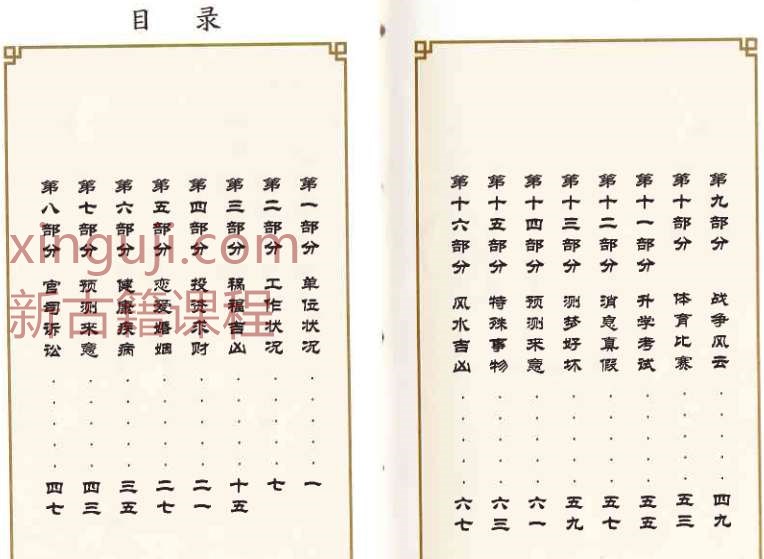 目 录
第一部分 单位状况 · · · · · 一
第二部分 工作状况 · · · · · 七
第三部分 祸福吉凶 · · · · · 十五
第四部分 投资求财 · · · · · 二一
第五部分 恋爱婚姻 · · · · · 二七
第六部分 健康疾病 · · · · · 三五
第七部分 预测来意 · · · · · 四三
第八部分 官司诉讼 · · · · · 四七
第九部分 战争风云 · · · · · 四九
第十部分 体育比赛 · · · · · 五三
第十一部分 升学考试 · · · · · 五五
第十二部分 消息真假 · · · · · 五七
第十三部分 测梦好坏 · · · · · 五九
第十四部分 预测来意 · · · · · 六一
第十五部分 特殊事物 · · · · · 六三
第十六部分 风水吉凶 · · · · · 六七
xinguji.com
新古籍课程